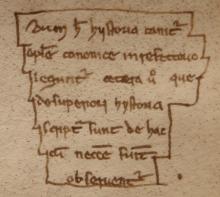 Dum h̄ hystoria canit᷑
epl̄e canonice in refectorio
legunt᷑ cetera u̾ que
de superiori hystoria
script᷑ sunt de hac
cū necc̄e fuit̄
obseruent᷑